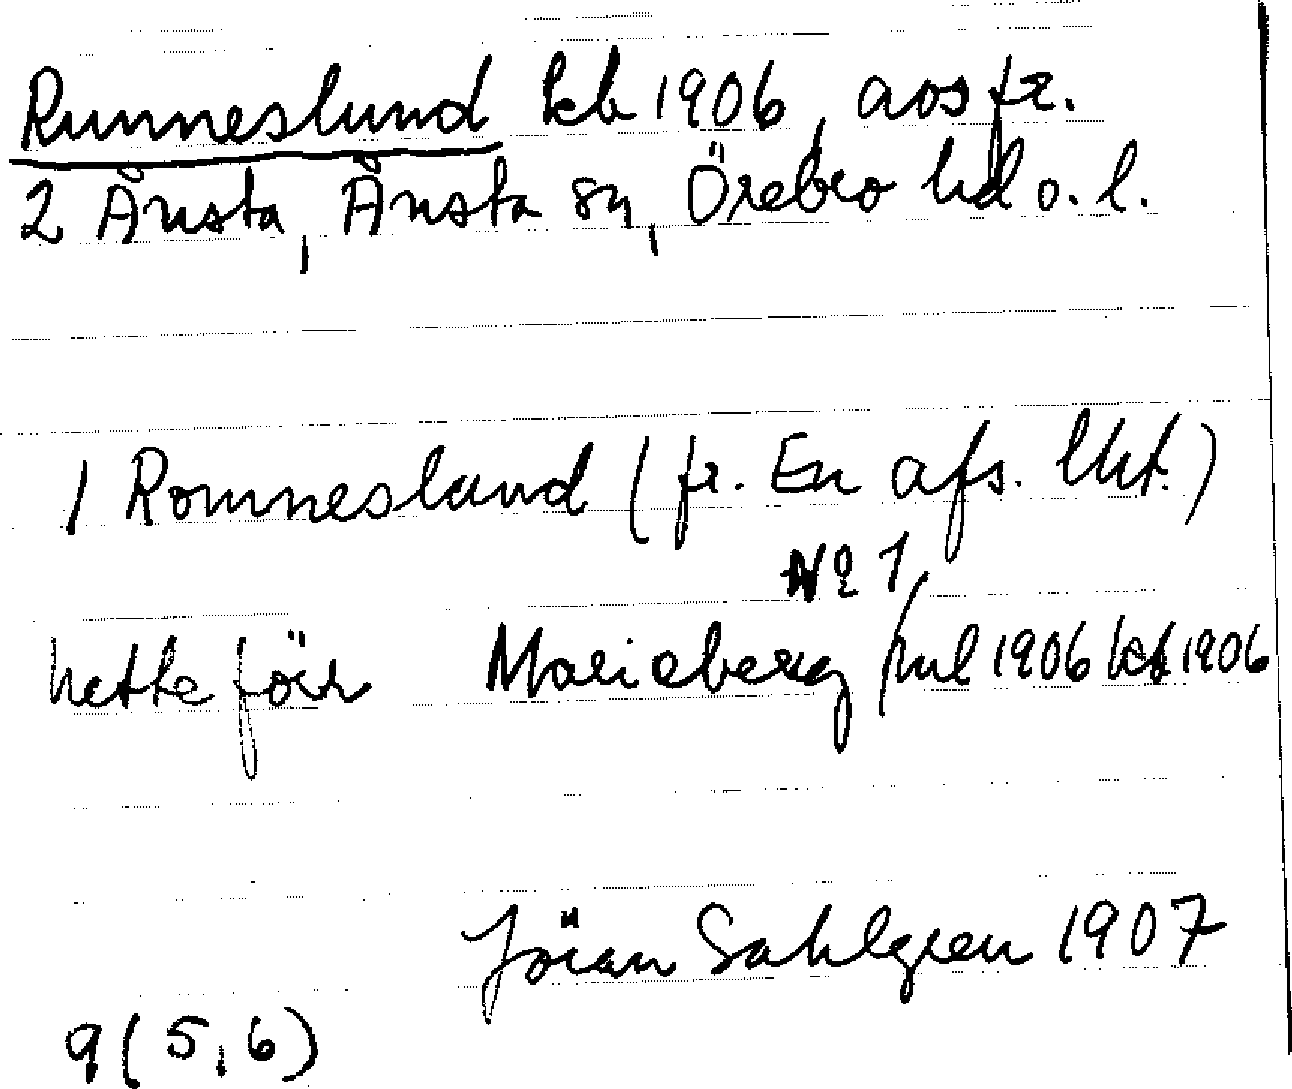 Runneslund kb 1906, avs fr.
2 Ånsta, Ånsta sn, Örebro hd o. l.
1 Romneslund (fr. En afs. lht.)
№ 1
hette förr Marieberg /ml 1906 kb 1906
Jöran Sahlgren 1907
9 (5, 6)